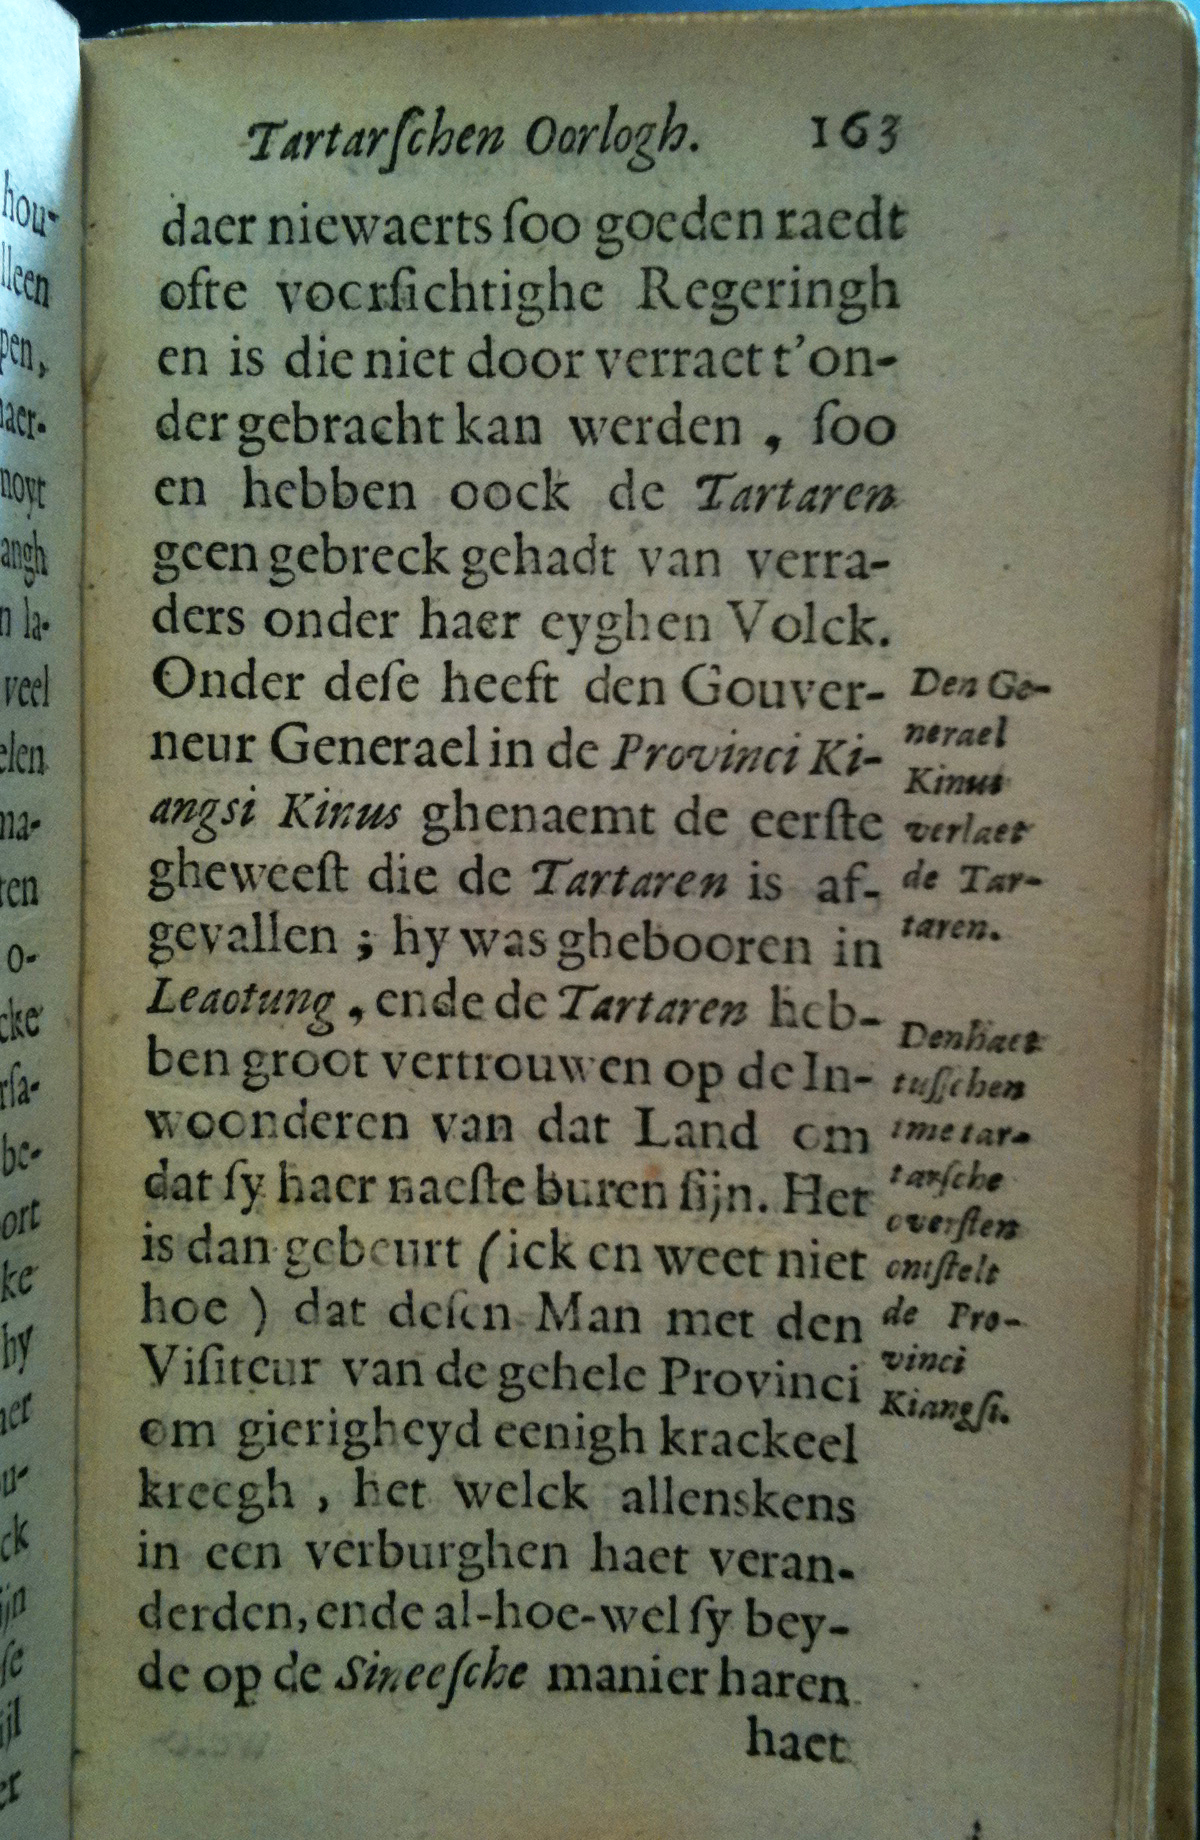 Tartarſchen Oorlogh. 163
daer niewaerts ſoo goeden raedt
ofte voorſichtighe Regeringh
en is die niet door verraet t'on-
der gebracht kan werden, ſoo
en hebben oock de Tartaren
geen gebreck gehadt van verra-
ders onder haer eyghen Volck.
Onder deſe heeft den Gouver-
neur Generael in de Provinci Ki-
angsi Kinus ghenaemt de eerſte
gheweeſt die de Tartaren is af-
gevallen; hy was ghebooren in
Leaotung, ende de Tartaren heb-
ben groot vertrouwen op de In-
woonderen van dat Land om
dat ſy haer naeſte buren ſijn. Het
is dan gebeurt (ick en weet niet
hoe) dat deſen Man met den
Viſiteur van de gehele Provinci
om gierigheyd eenigh krackeel
kreegh, het welck allenskens
in een verburghen haet veran-
derden, ende al-hoe-wel ſy bey-
de op de Sineeſche manier haren
haet
Den Ge-
nerael
Kinus
verlaet
de Tar-
taren.
Den haet
tuſſchen
twe tar-
tarſche
overſten
ontſtelt
de Pro-
vinci
Kiangſi.
hou-
lleen
pen,
aer-
noyt
angh
n la-
veel
elen
na-
ten
o-
cke
rſa-
be-
ort
ke
hy
er
u-
ck
ijn
ſe
ijl
er